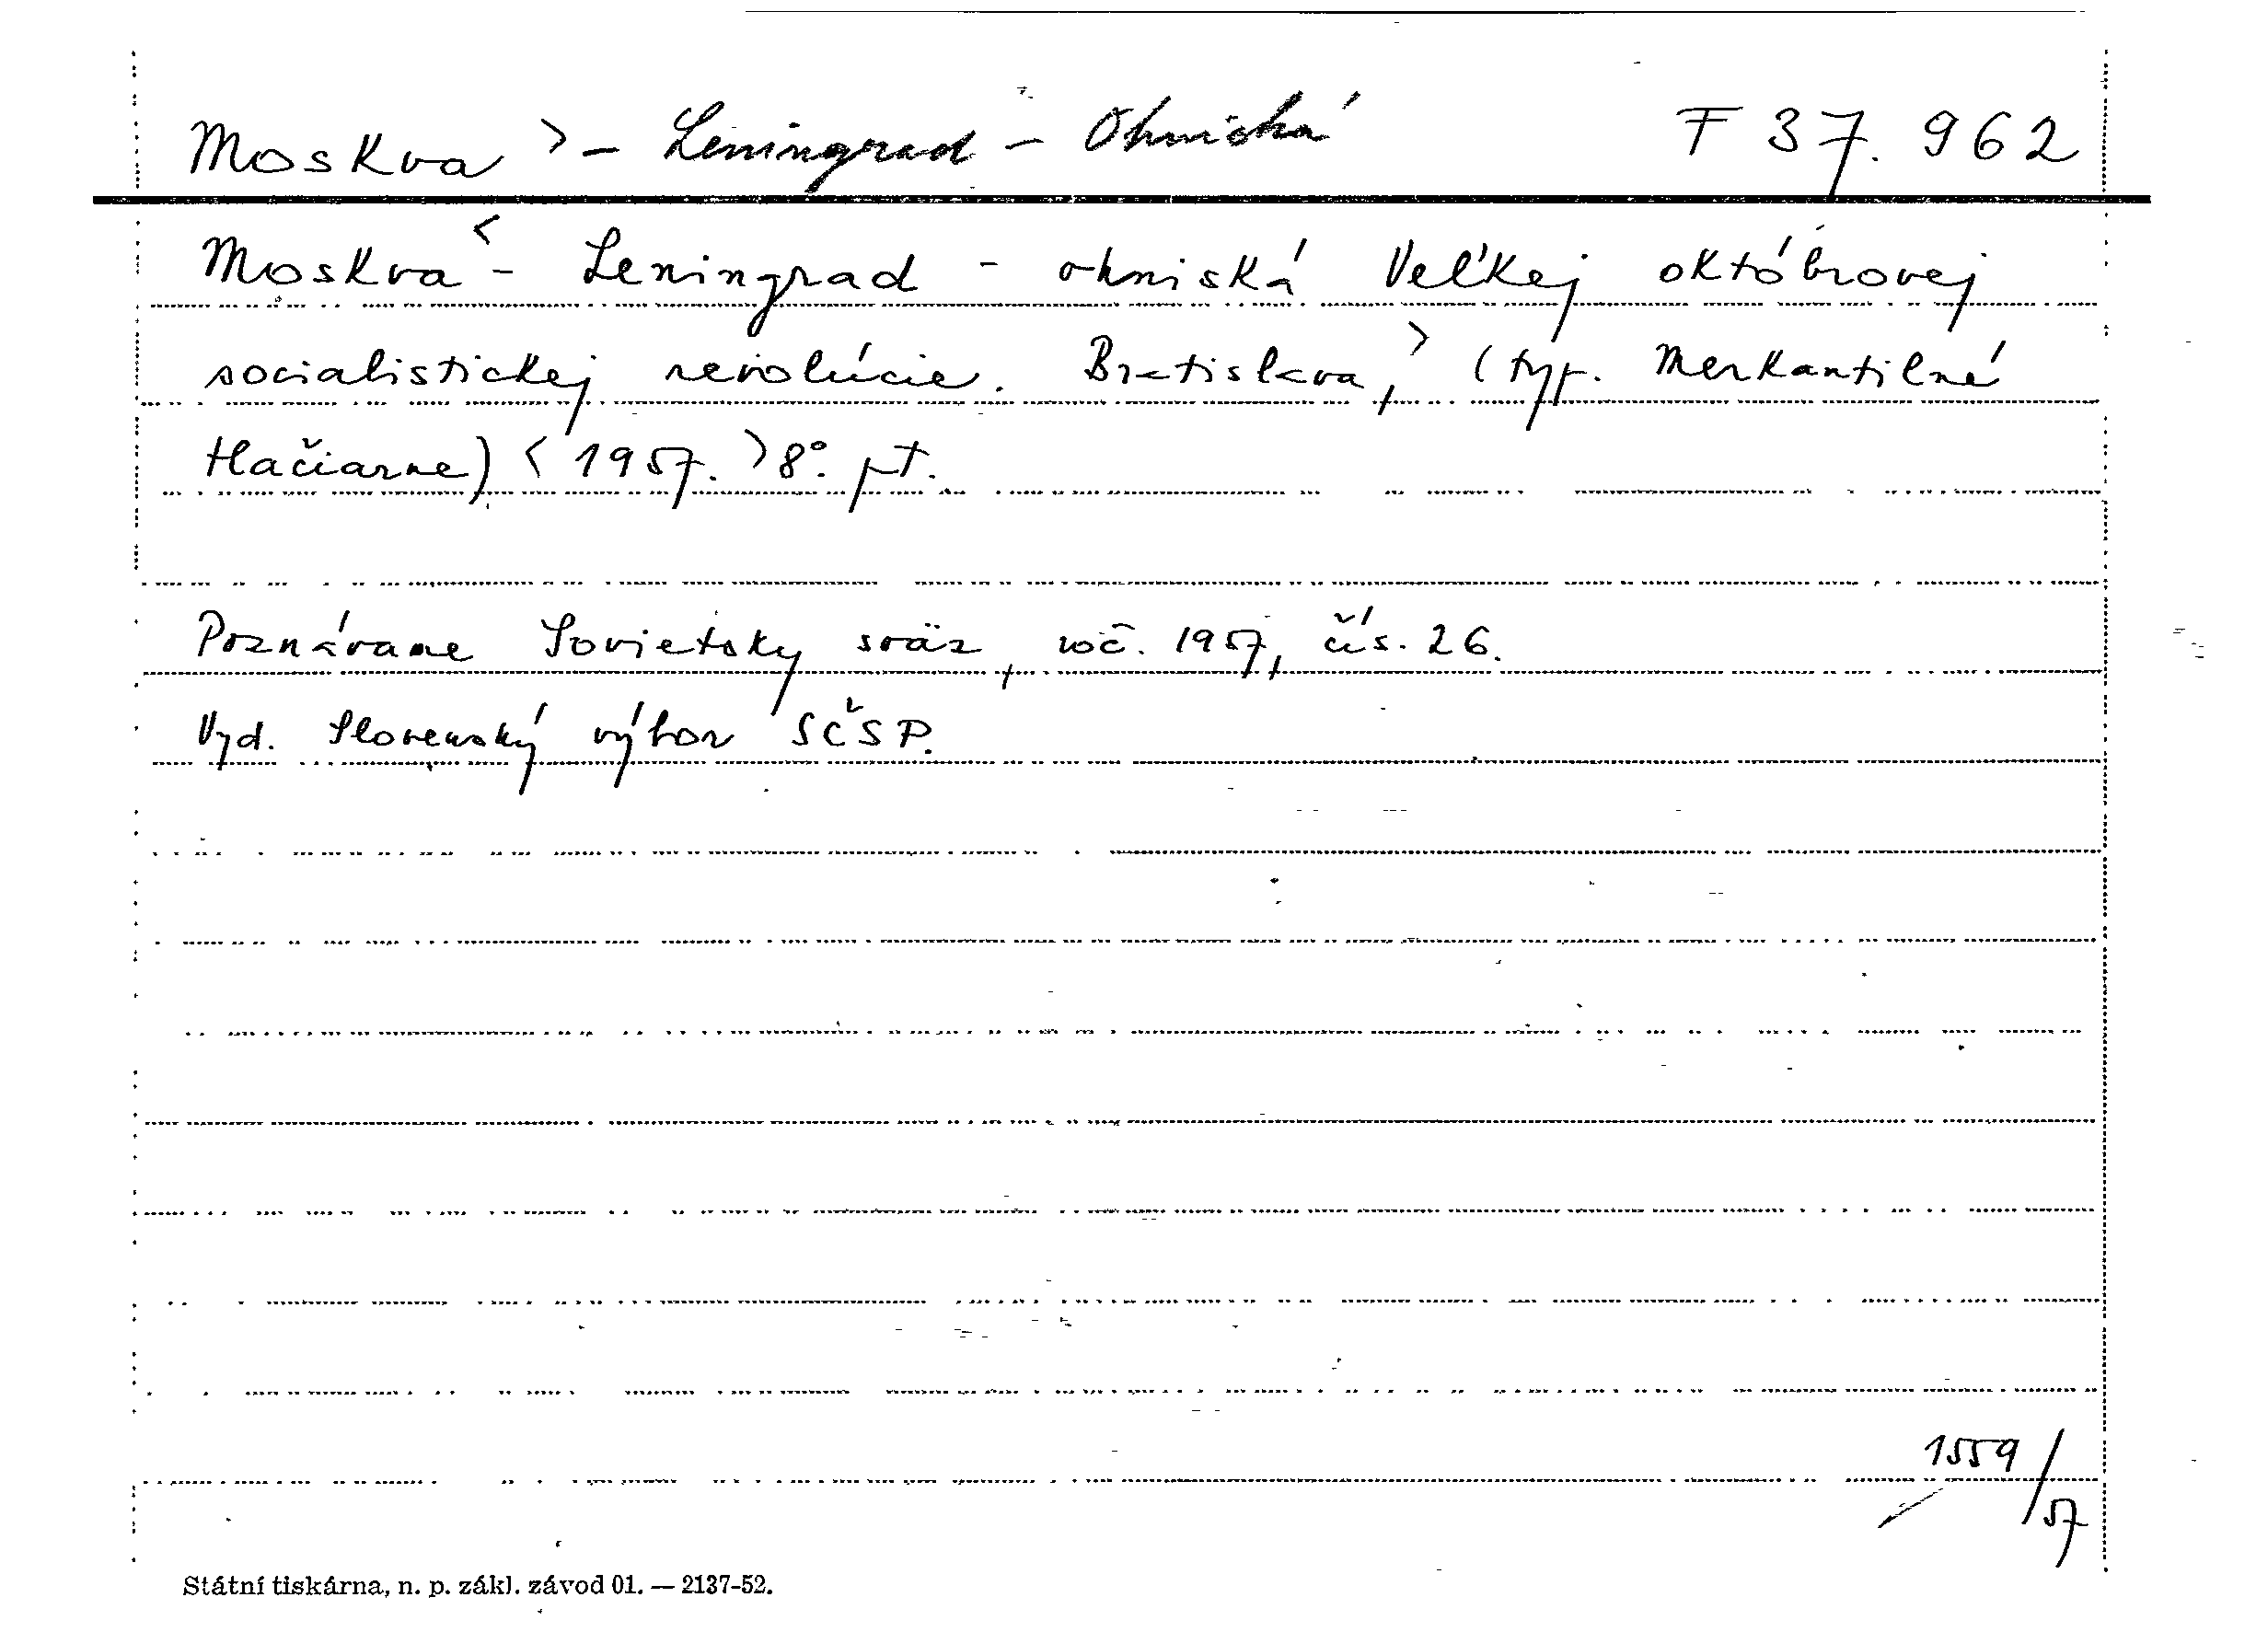 Moskva > - Leningrad - Ohniská F 37.962
Moskva < - Leningrad - ohniská Veľkej októbrovej
socialistickej revolúcie. Bratislava, > (typ. Merkantilné
tlačiarne) < 1957. > 8°. pt.
Poznávame Sovietsky sväz, roč. 1957, čís. 26.
Vyd. Slovenský výbor SČSP.
1559/57
Státní tiskárna, n. p. zákl. závod 01. — 2137-52.